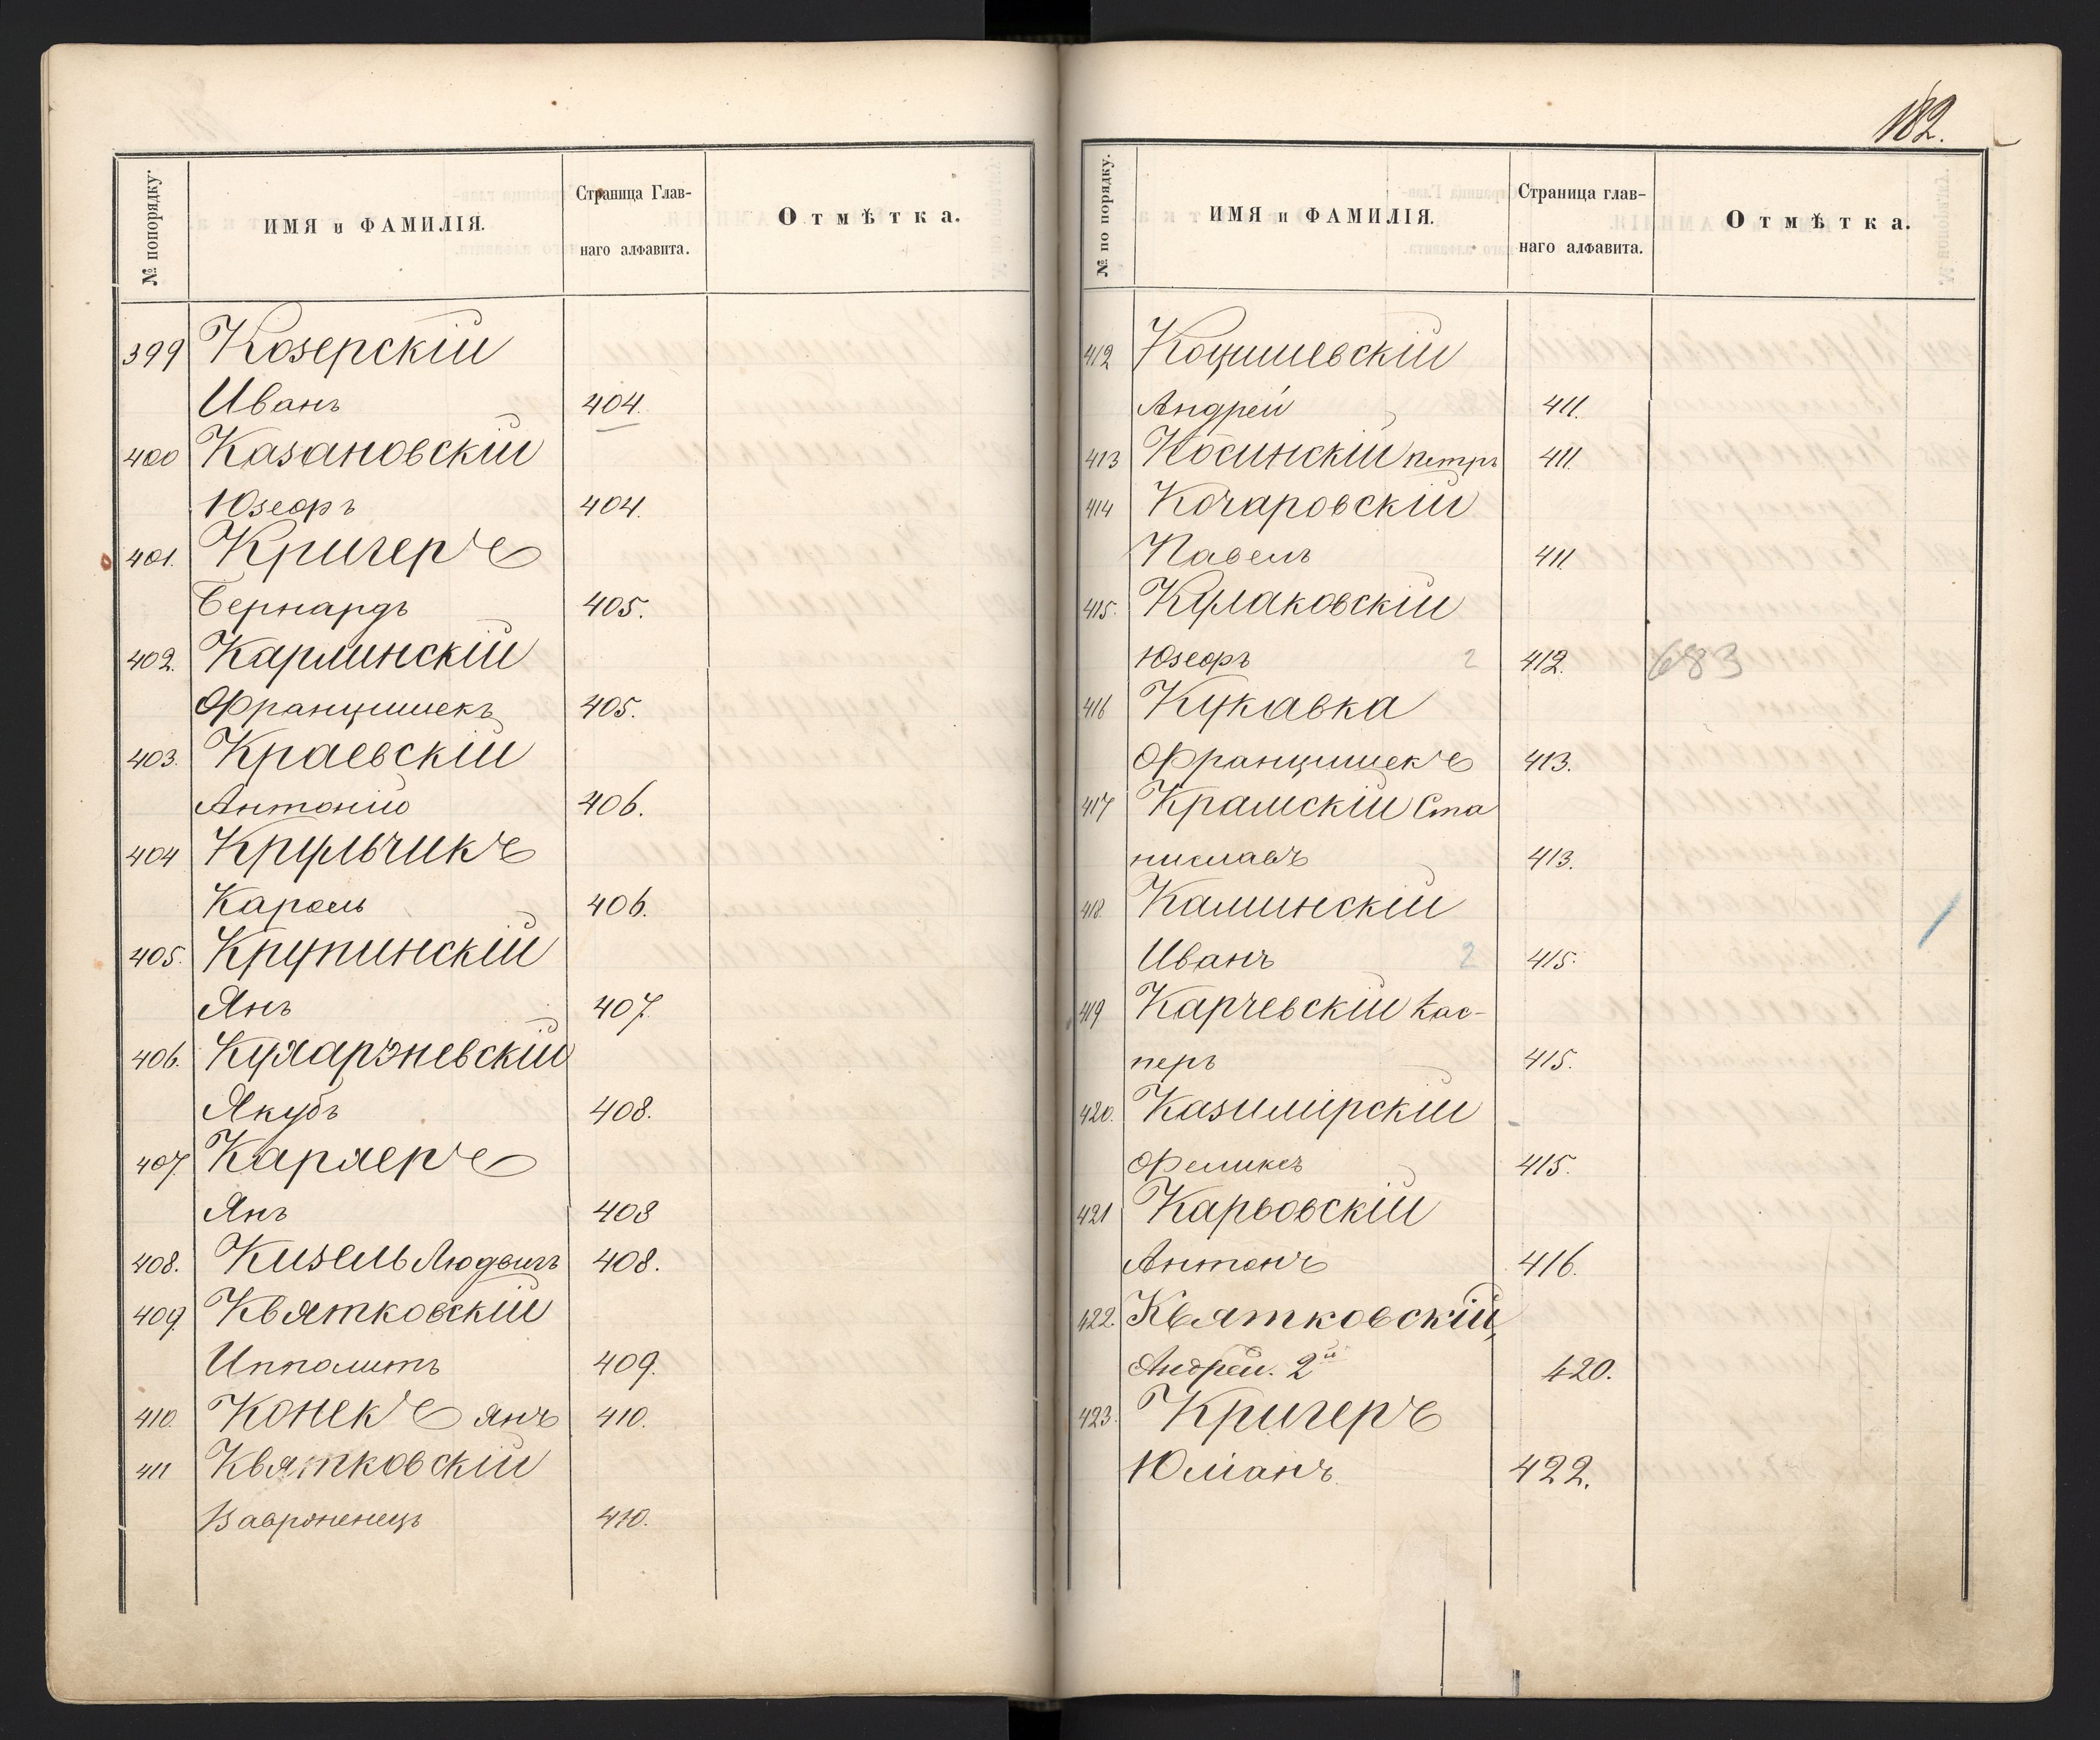 № попорядку.
ИМЯ и ФАМИЛІЯ.
Страница Глав-
наго алфавита.
Отмѣтка.
399 Козерскій
Иванъ 404.
400 Казановскій
Юзефъ 404.
401. Кригеръ
Бернардъ 405.
402. Карлинскій
Францишекъ 405.
403. Краевскій
Антоній 406.
404 Крульчикъ
Кароль 406.
405. Крупинскій
Янъ 407.
406.
Якубъ 408.
407.
Янъ 408
408. Кизель Людвигъ 408.
409. Квятковскій
Ипполитъ 409.
410. Конекъ янъ 410.
411 Квятковскій
410.
182.
№ по порядку.
ИМЯ и ФАМИЛІЯ.
Страница глав-
наго алфавита.
Отмѣтка.
412 Коцишевскій
Андрей 411.
413 Косинскій петръ 411.
414 Кочаровскій
Павелъ 411
415. Кулаковскій
Юзефъ 2 412. 683
416 Кукавка
Францишекъ 413.
417 Крамскій Ста
ниславъ 413.
418. Каминскій
Иванъ 2 415.
419 Карчевскій Кас-
перъ 415.
420. Казимірскій
Феликсъ 415.
421 Карвовскій
Антонъ 416.
422. Квятковскій,
Андрей. 2й 420.
423. Кригеръ
Юліанъ 422.